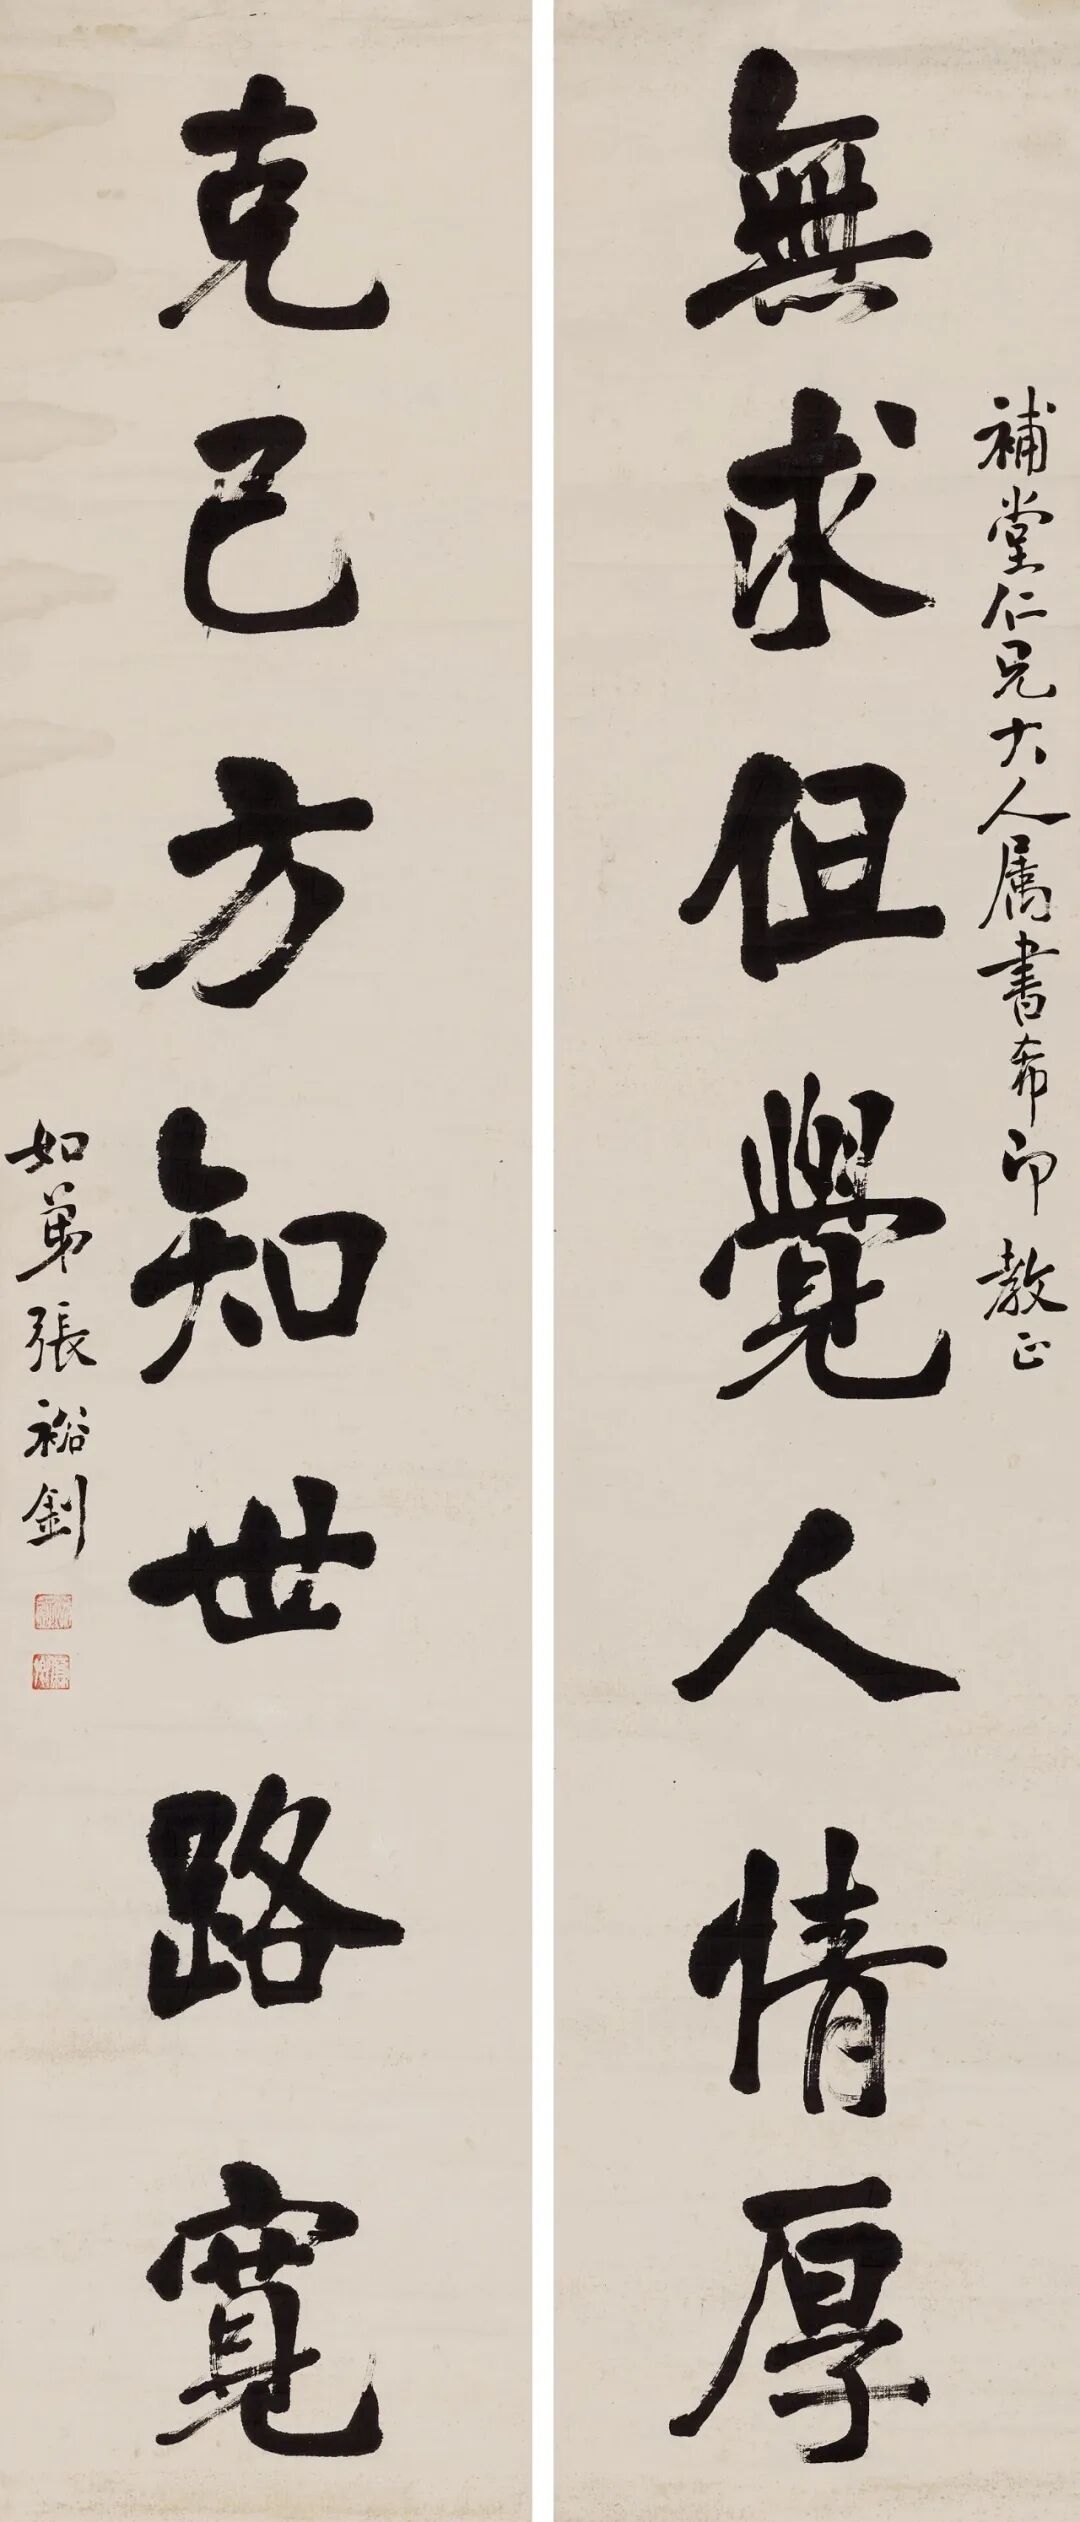 補堂仁兄大人属書希印教正
無求但覺人情厚
克己方知世路寬
如弟張裕釗